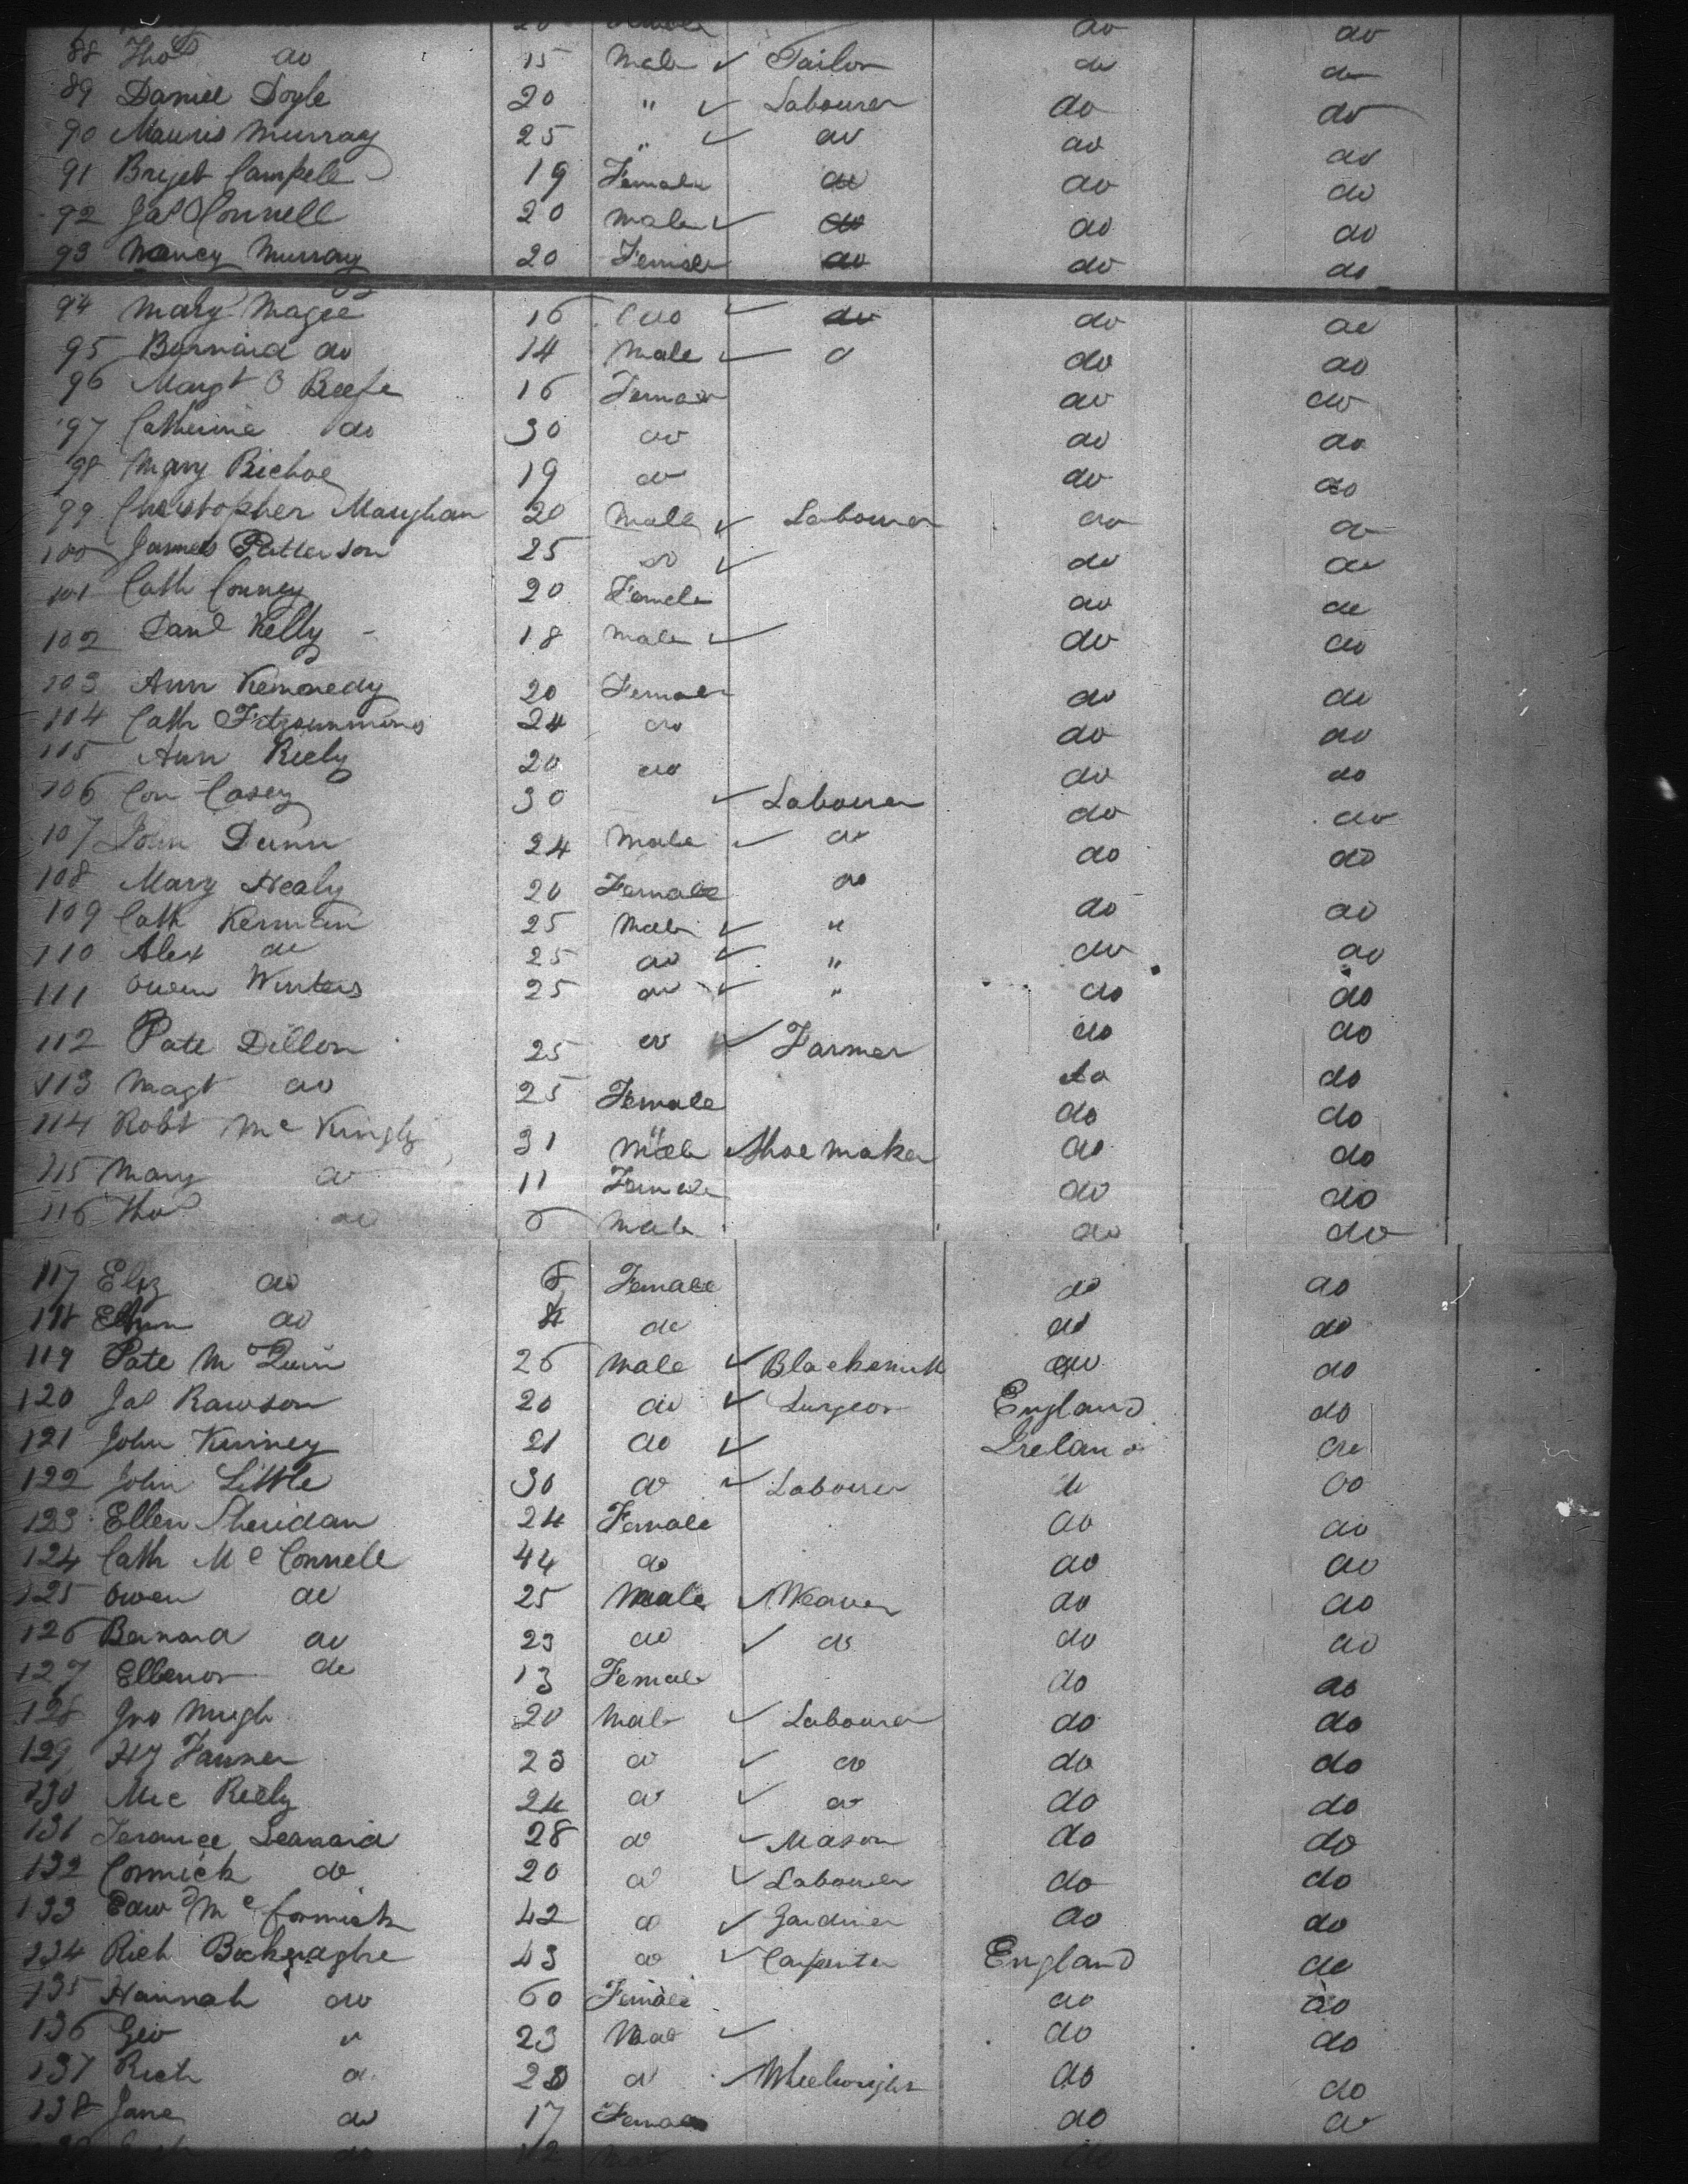 20 do do
88 Thos do 15 Male ✓ Tailor do do
89 Daniel Doyle 20 " ✓ Labourer do do
90 Mauris Murray 25 " ✓ do do do
91 Brijet Campell 19 Female do do do
92 Jas Connell 20 Male ✓ do do do
93 Nancy Murray 20 Female do do do
94 Mary Magee 16 do ✓ do do do
95 Bernard do 14 Male ✓ do do
96 Margt O Beefe 16 Female do do
97 Catherine do 30 do do do
98 Mary 19 do do do
99 Christopher Maughan 20 Male ✓ Labourer do do
100 James Patterson 25 do ✓ do do
101 Cath Conney 20 Female do do
102 Danl Kelly 18 Male ✓ do do
103 Ann Kennedy 20 Female do do
104 Cath Fitzsummons 24 do do do
115 Ann Riely 20 do do do
106 Con Casey 30 ✓ Labourer do do
107 John Dunn 24 Male ✓ do do do
108 Mary Healy 20 Female do do do
109 Cath Kernan 25 Male ✓ " do do
110 Alex do 25 do ✓ " do do
111 Owen Winters 25 do ✓ " do do
112 Pate Dillon 25 do ✓ Farmer do do
113 Magt do 25 Female do do
114 Robt Mc 31 Male Shoe maker do do
115 Mary do 11 Female do do
116 Thos do 6 Male do do
117 Eliz do Female do do
118 do 4 do do do
119 Pate Mc Quin 26 Male ✓ Blacksmith do do
120 Jas Rawson 20 do ✓ Surgeon England do
121 John Kinney 21 do ✓ Ireland do
122 John Little 30 do ✓ Labourer do do
123 Ellen Sheridan 24 Female do do
124 Cath Mc Connell 44 do do do
125 Owen do 25 Male ✓ Weaver do do
126 Bernard do 23 do ✓ do do do
127 Ellenor do 13 Female do do
128 Jno 20 Male ✓ Labourer do do
129 Hy Farmer 23 do ✓ do do do
130 Mic Riely 24 do ✓ do do do
131 Terance Leanard 28 do ✓ Mason do do
132 Cormick do 20 do ✓ Labourer do do
133 Edwd Mc Cormick 42 do ✓ Gardiner do do
134 Rich 43 do ✓ Carpenter England do
135 Hannah do 60 Female do do
136 Geo " 23 Male ✓ do do
137 Rich do do ✓ Wheelwright do do
138 Jane do 17 Female do do
do 12